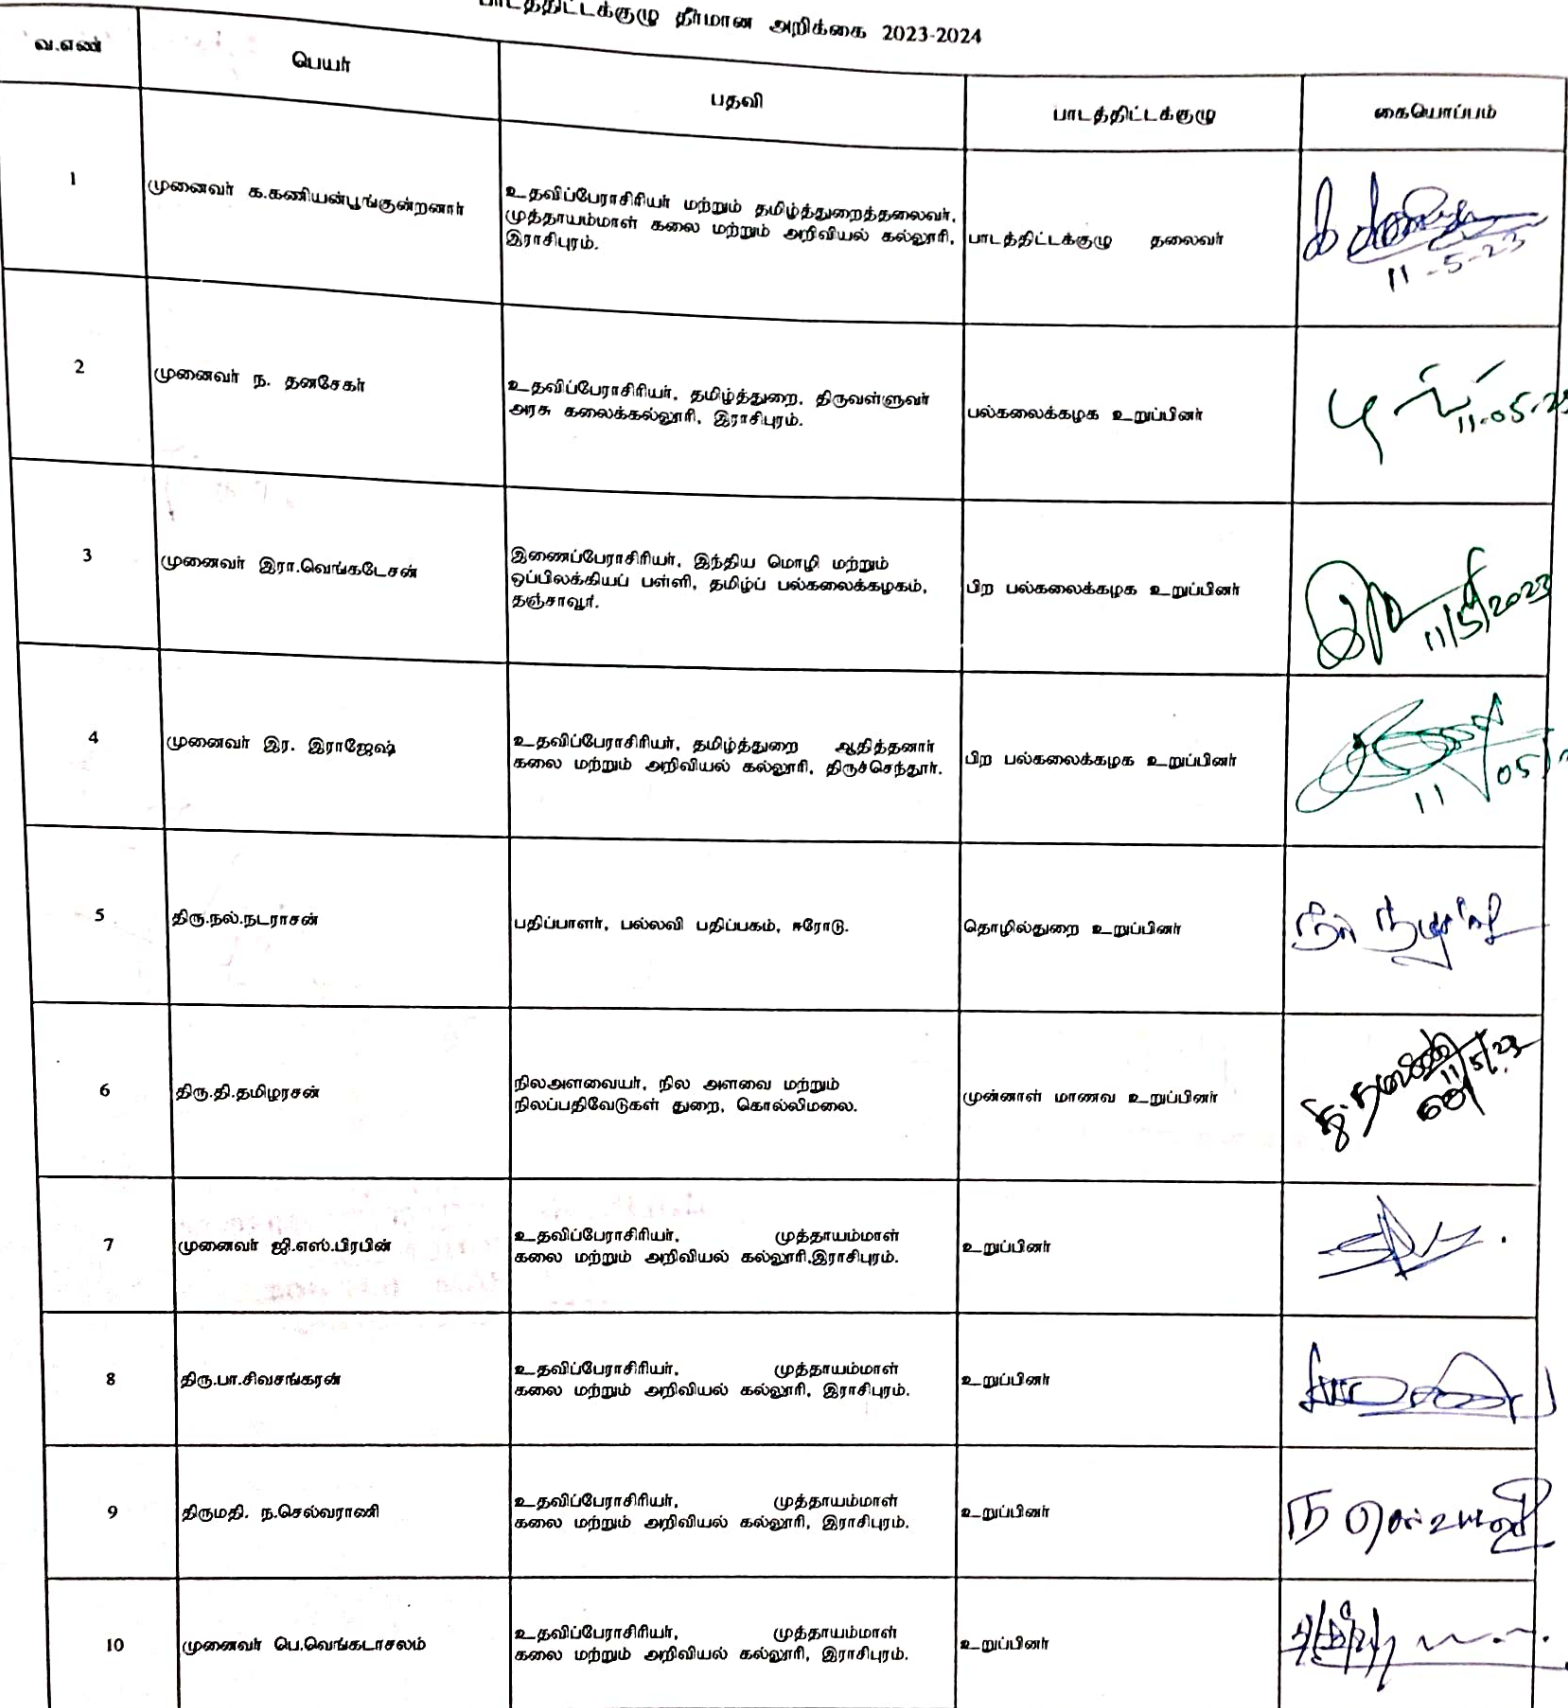 பாடத்திட்டக்குழு தீர்மான அறிக்கை 2023-2024
வ.எண் பெயர் பதவி பாடத்திட்டக்குழு கையொப்பம்
1 முனைவர் க.கணியன்பூங்குன்றனார் உதவிப்பேராசிரியர் மற்றும் தமிழ்த்துறைத்தலைவர்,
முத்தாயம்மாள் கலை மற்றும் அறிவியல் கல்லூரி,
இராசிபுரம்.
பாடத்திட்டக்குழு தலைவர்
11-5-23
2 முனைவர் ந. தனசேகர் உதவிப்பேராசிரியர், தமிழ்த்துறை, திருவள்ளுவர்
அரசு கலைக்கல்லூரி, இராசிபுரம்.
பல்கலைக்கழக உறுப்பினர்
11.05.23
3 முனைவர் இரா.வெங்கடேசன் இணைப்பேராசிரியர், இந்திய மொழி மற்றும்
ஒப்பிலக்கியப் பள்ளி, தமிழ்ப் பல்கலைக்கழகம்,
தஞ்சாவூர்.
பிற பல்கலைக்கழக உறுப்பினர்
11/5/2023
4 முனைவர் இர. இராஜேஷ் உதவிப்பேராசிரியர், தமிழ்த்துறை ஆதித்தனார்
கலை மற்றும் அறிவியல் கல்லூரி, திருச்செந்தூர்.
பிற பல்கலைக்கழக உறுப்பினர்
11/05/
5 திரு.நல்.நடராசன் பதிப்பாளர், பல்லவி பதிப்பகம், ஈரோடு.
தொழில்துறை உறுப்பினர்
6 திரு.தி.தமிழரசன் நிலஅளவையர், நில அளவை மற்றும்
நிலப்பதிவேடுகள் துறை, கொல்லிமலை.
முன்னாள் மாணவ உறுப்பினர்
11/5/23
7 முனைவர் ஜி.எஸ்.பிரபின் உதவிப்பேராசிரியர், முத்தாயம்மாள்
கலை மற்றும் அறிவியல் கல்லூரி,இராசிபுரம்.
உறுப்பினர்
8 திரு.பா.சிவசங்கரன் உதவிப்பேராசிரியர், முத்தாயம்மாள்
கலை மற்றும் அறிவியல் கல்லூரி, இராசிபுரம்.
உறுப்பினர்
9 திருமதி. ந.செல்வராணி உதவிப்பேராசிரியர், முத்தாயம்மாள்
கலை மற்றும் அறிவியல் கல்லூரி, இராசிபுரம்.
உறுப்பினர்
ந செல்வராணி
10 முனைவர் பெ.வெங்கடாசலம் உதவிப்பேராசிரியர், முத்தாயம்மாள்
கலை மற்றும் அறிவியல் கல்லூரி, இராசிபுரம்.
உறுப்பினர்